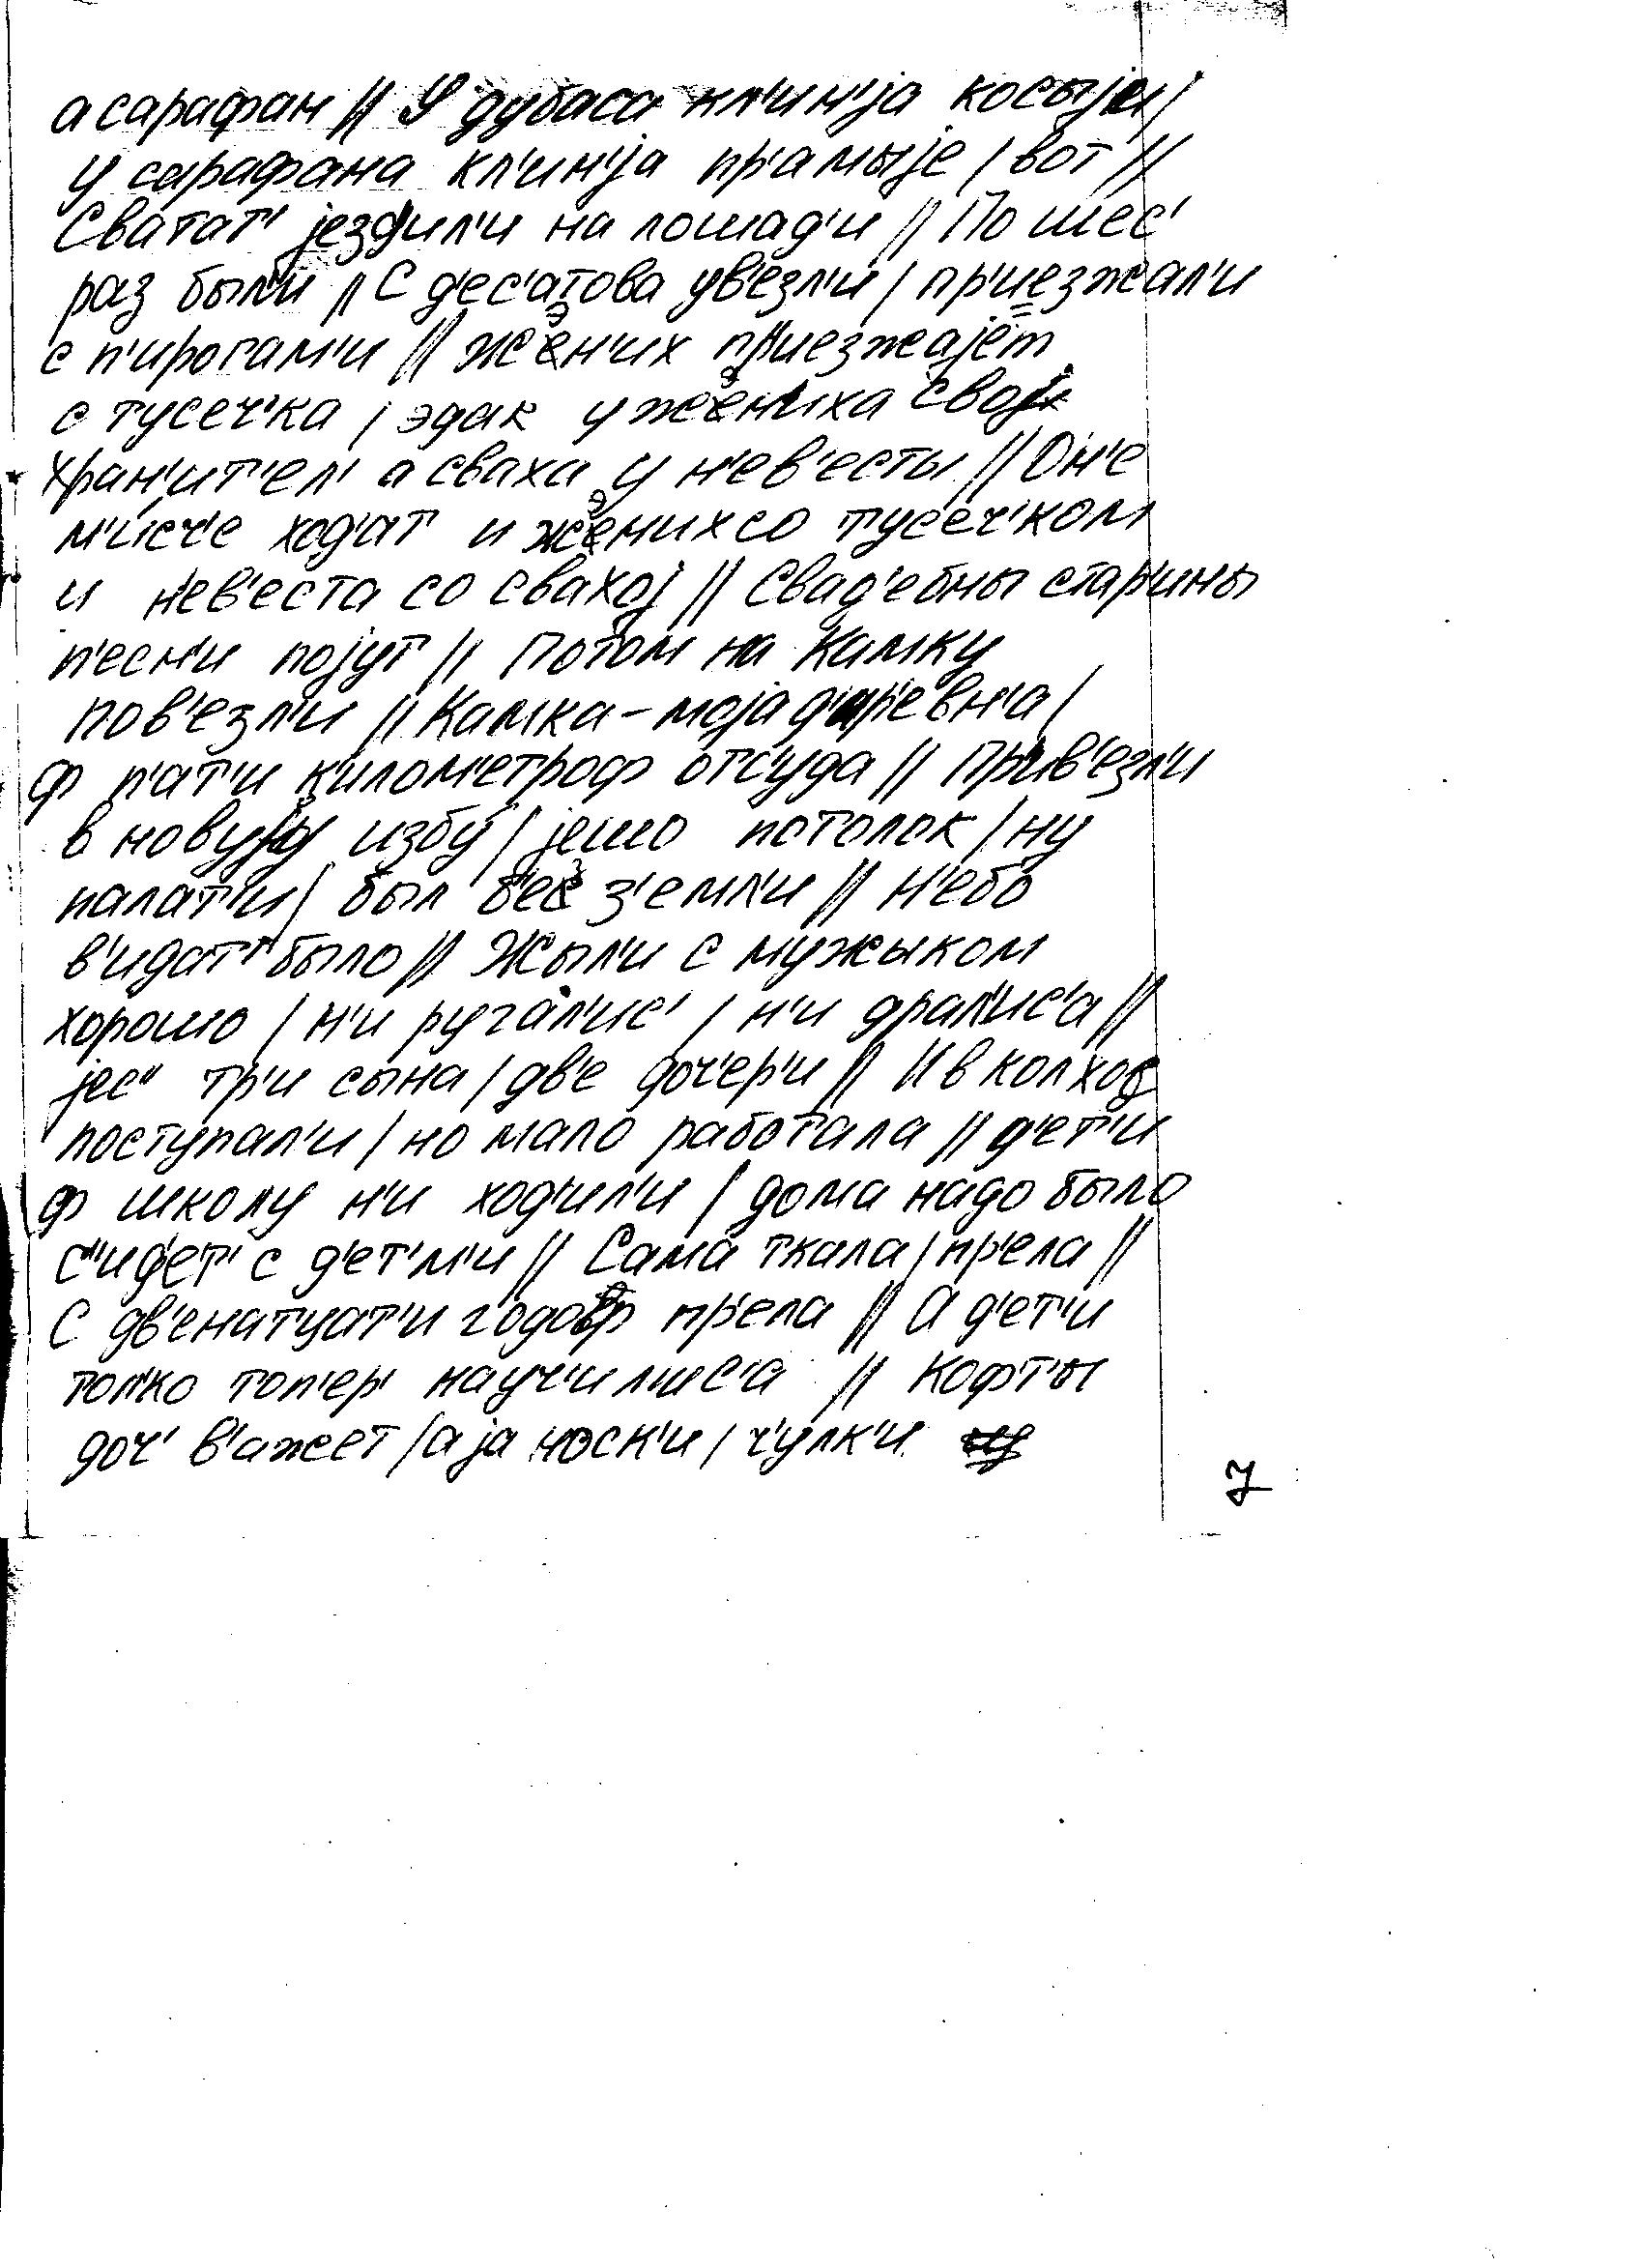 а сарафан // У дубаса кл'ин'jа косыjе /
у сарафана кл'ин'jа пр'амыjе / вот //
Сватат' jезд'ил'и на лошад'и // По шес'
раз был'и // С д'ес'атова ув'езл'и / пр'иезжал'и
с п'ирогам'и // жэн'их пр'иезжаjет
с тусеч'ка / эдак у жэн'иха своj
хран'ит'ел' а сваха у н'ев'есты // Он'е
м'исч'е ход'ат и жэних со тусеч'ком
и н'ев'еста со свахоj // Свад'ебны стар'ины
п'есн'и поjут // Потом на Камку
пов'езл'и // Камка - моjа д'ир'евн'а /
ф п'ат'и к'илом'етроф отс'уда // Пр'ив'езл'и
в новуjу избу / jешо потолок / ну
палат'и / был б'ез з'емл'и // Н'ебо
в'идат' было // Жыл'и с мужыком
хорошо / н'и ругал'ис' / н'и драл'ис'а //
jес" тр'и сына / дв'е доч'ер'и // И в колхоз
поступал'и / но мало работала // д'ет'и
ф школу н'и ход'ил'и / дома надо было
с'ид'ет' с д'ет'м'и // Сама ткала / пр'ела //
С дв'енатцат'и годоф пр'ела // А д'ет'и
тол'ко топ'ер' науч'ил'ис'а // Кофты
доч' в'ажет / а jа носк'и / ч'улк'и
7